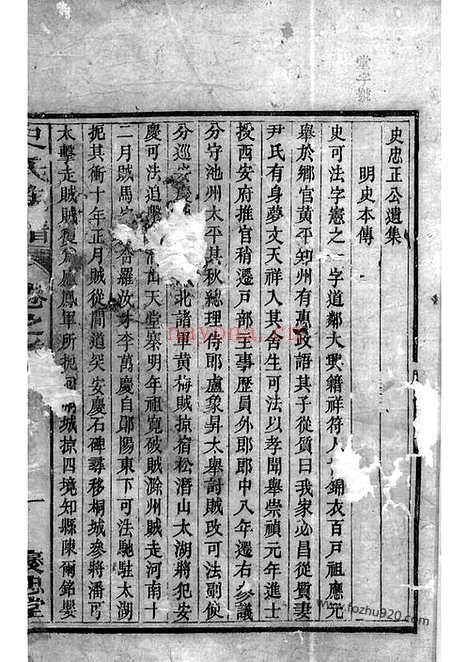 史忠正公遺集
明史本傳
史可法字憲之一字道鄰大興籍祥符人 錦衣百戸祖應元
舉於鄉官黃平知州有惠政語其子從質曰我家必昌從質妻
尹氏有身夢文天祥入其舍生可法以孝聞舉崇禎元年進士
授西安府推官稍遷戸部主事歷員外郎郎中八年遷右參議
分守池州太平其秋總理侍郎盧象昇大舉討賊改可法副使
分巡安慶 北諸軍黃梅賊掠宿松潛山太湖將犯安
慶可法追擊 潛山天堂寨明年祖寬破賊滁州賊走河南十
二月賊馬守 合羅汝才李萬慶自鄖陽東下可法馳駐太湖
扼其衝十年正月賊從間道突安慶石碑尋移桐城參將潘可
大擊走賊賊復 廬鳳軍所扼 桐城掠四境知縣陳爾銘嬰
史氏 譜
卷之
慶思堂
堂字號
nayona.cn
www.fozhu920.com